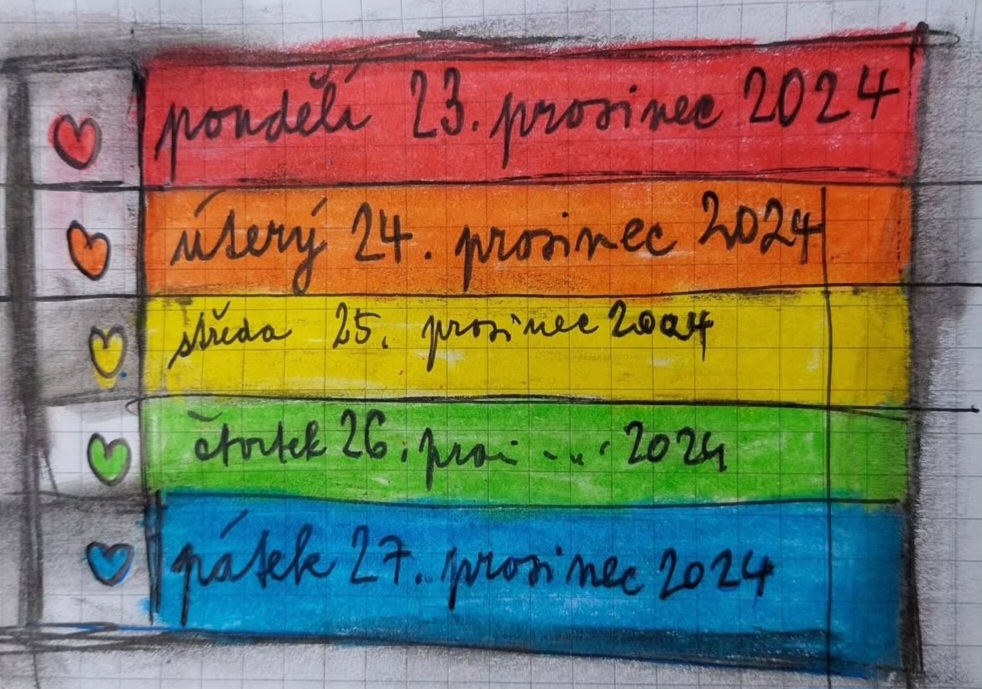 pondělí 23. prosinec 2024
úterý 24. prosinec 2024
středa 25. prosinec 2024
čtvrtek 26. 2024
pátek 27. prosinec 2024